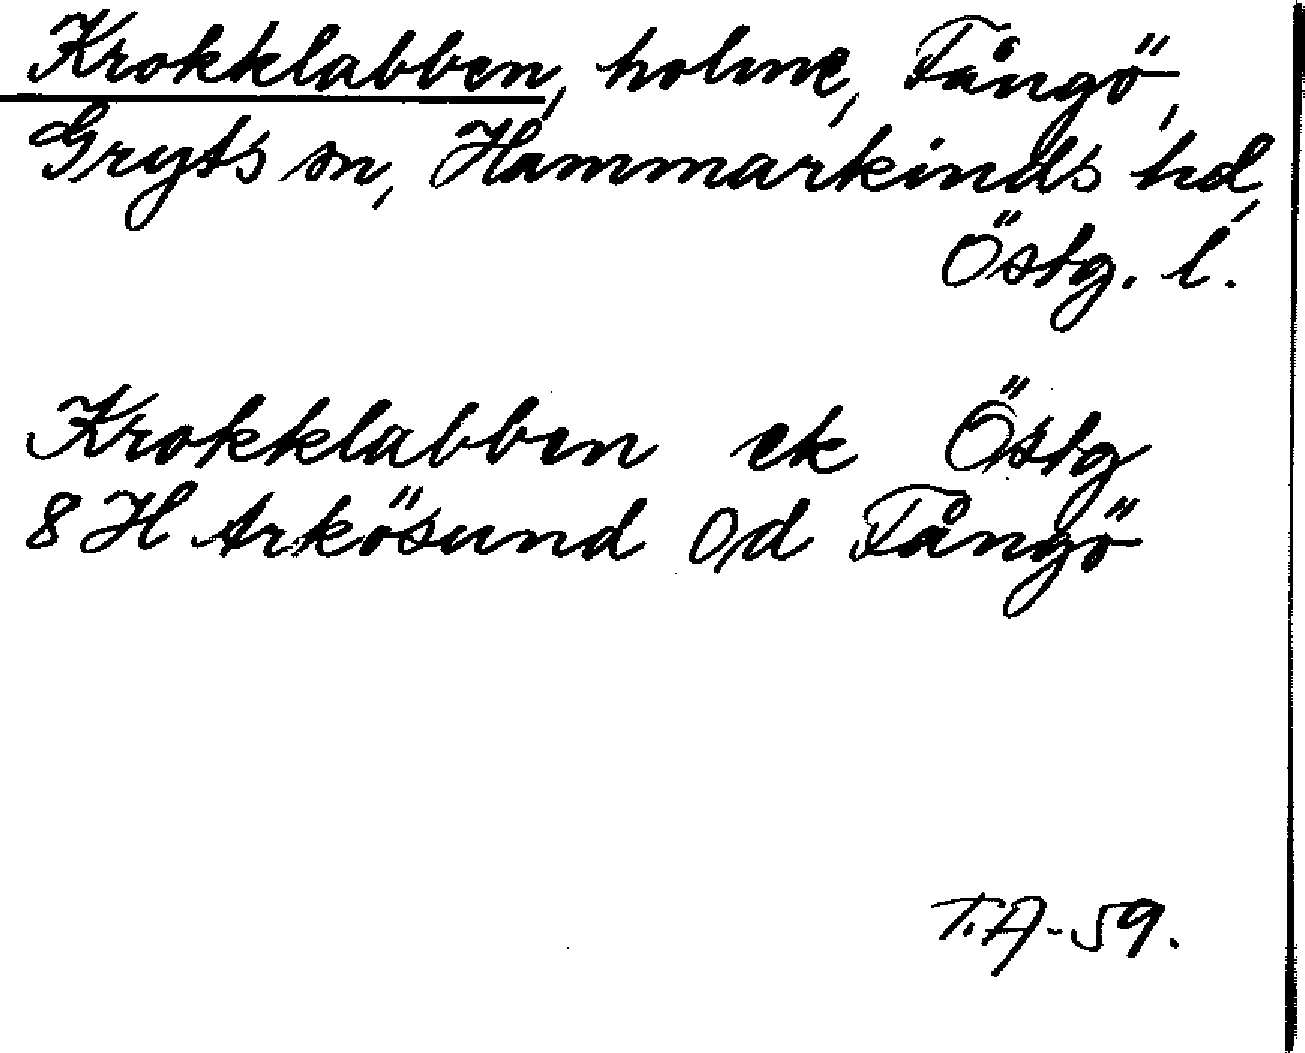 Krokklabben, holme, Fångö,
Gryts sn, Hammarkinds hd,
Östg. l.
Krokklabben ek Östg
8 H Arkösund Od Fångö
T.A-59.